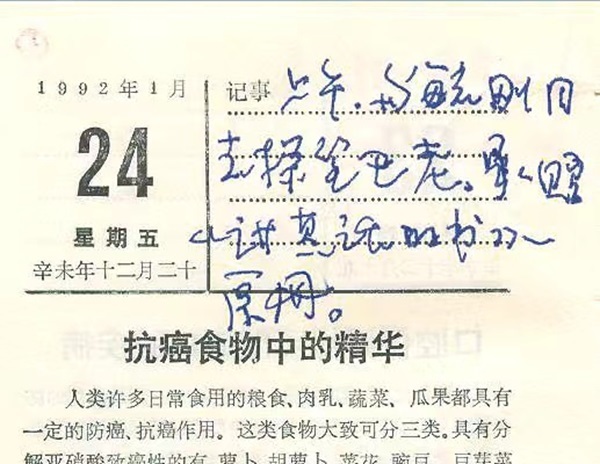 1992年1月
24
星期五
辛未年十二月二十
记事 上午,与毓刚同
去探望巴老。
《讲真话的书》
抗癌食物中的精华
人类许多日常食用的粮食、肉乳、蔬菜、瓜果都具有
一定的防癌、抗癌作用。这类食物大致可分三类。具有分
解亚硝酸致癌性的有 萝卜、胡萝卜、菜花、豌豆、豆芽菜